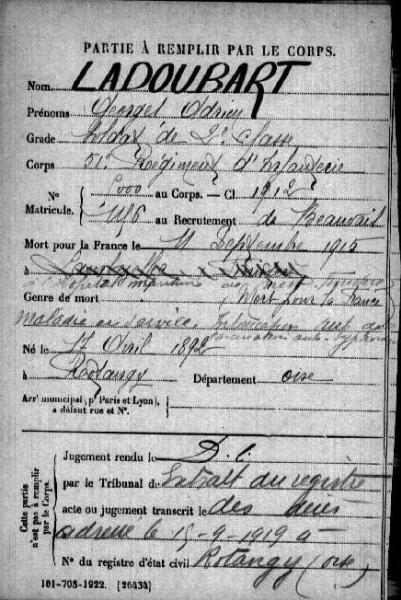 PARTIE À REMPLIR PAR LE CORPS.
Nom LADOUBART
Prénoms Georges Adrien
Grade Soldat de 2e classe
Corps 51e Régiment d'Infanterie
N° 5000 au Corps. — Cl. 1912
Matricule. au Recrutement de Beauvais
Mort pour la France le 11 Septembre 1915
à
Hôpital maritime
Genre de mort Mort pour la France
maladie en service,
Né le 17 Avril 1892
à Rotangy Département Oise
Arrt municipal (pr Paris et Lyon),
à défaut rue et N°.
Cette partie
n'est pas à remplir
par le Corps.
Jugement rendu le D.C.
par le Tribunal de Extrait du registre
acte ou jugement transcrit le des décès
adressé le 15-9-1919 à
N° du registre d'état civil Rotangy (Oise)
101-708-1922. [26434]